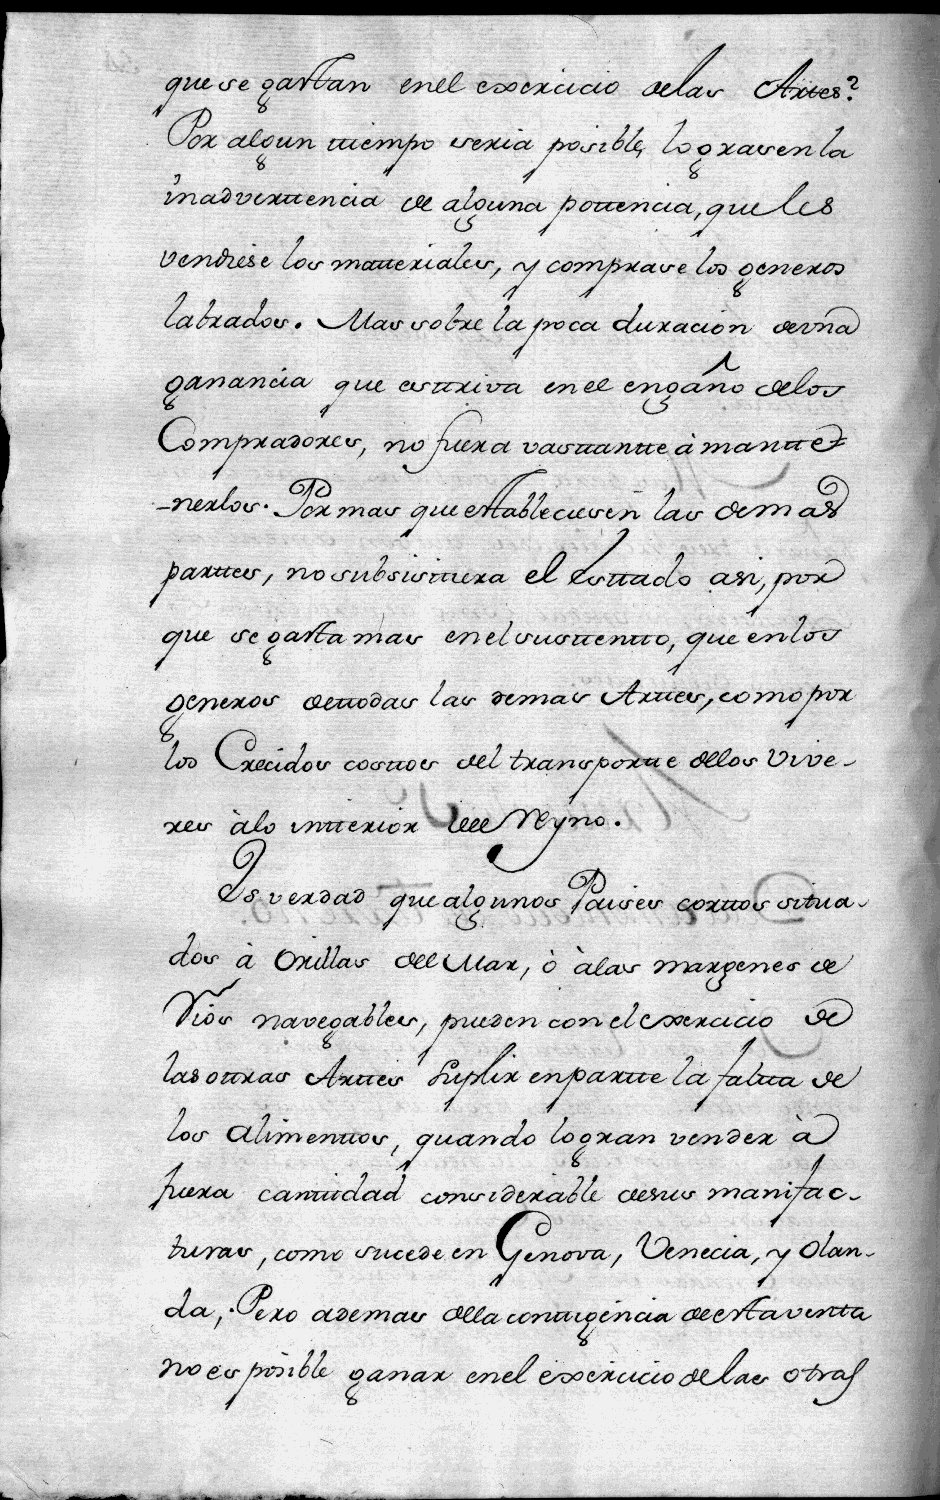 que se gastan en el exercicio de las Artes?
Por algun tiempo seria posible, lograsen la
inadvertencia de alguna potencia, que les
vendiese los materiales, y comprase los generos
labrados. Mas sobre la poca duracion de vna
ganancia que estriva en el engaño de los
Compradores, no fuera vastante à mante-
-nerlos. Por mas que establecìesen las demas
partes, no subsistiera el Estado asi, por
que se gasta mas en el sustento, que en los
generos de todas las demas Artes, como por
los Crecidos costos del transporte de los Vive-
res à lo interior del Reyno.
Es verdad que algunos Paises cortos situa-
dos à Orillas del Mar, ò à las margenes de
Rios navegables, pueden con el exercicio de
las otras Artes Suplir en parte la falta de
los alimentos, quando logran vender à
fuera cantidad considerable de sus manifac-
turas, como sucede en Genova, Venecia, y Olan-
da, Pero ademas de la contigencia de esta venta
no es posible ganar en el exercicio de las otras